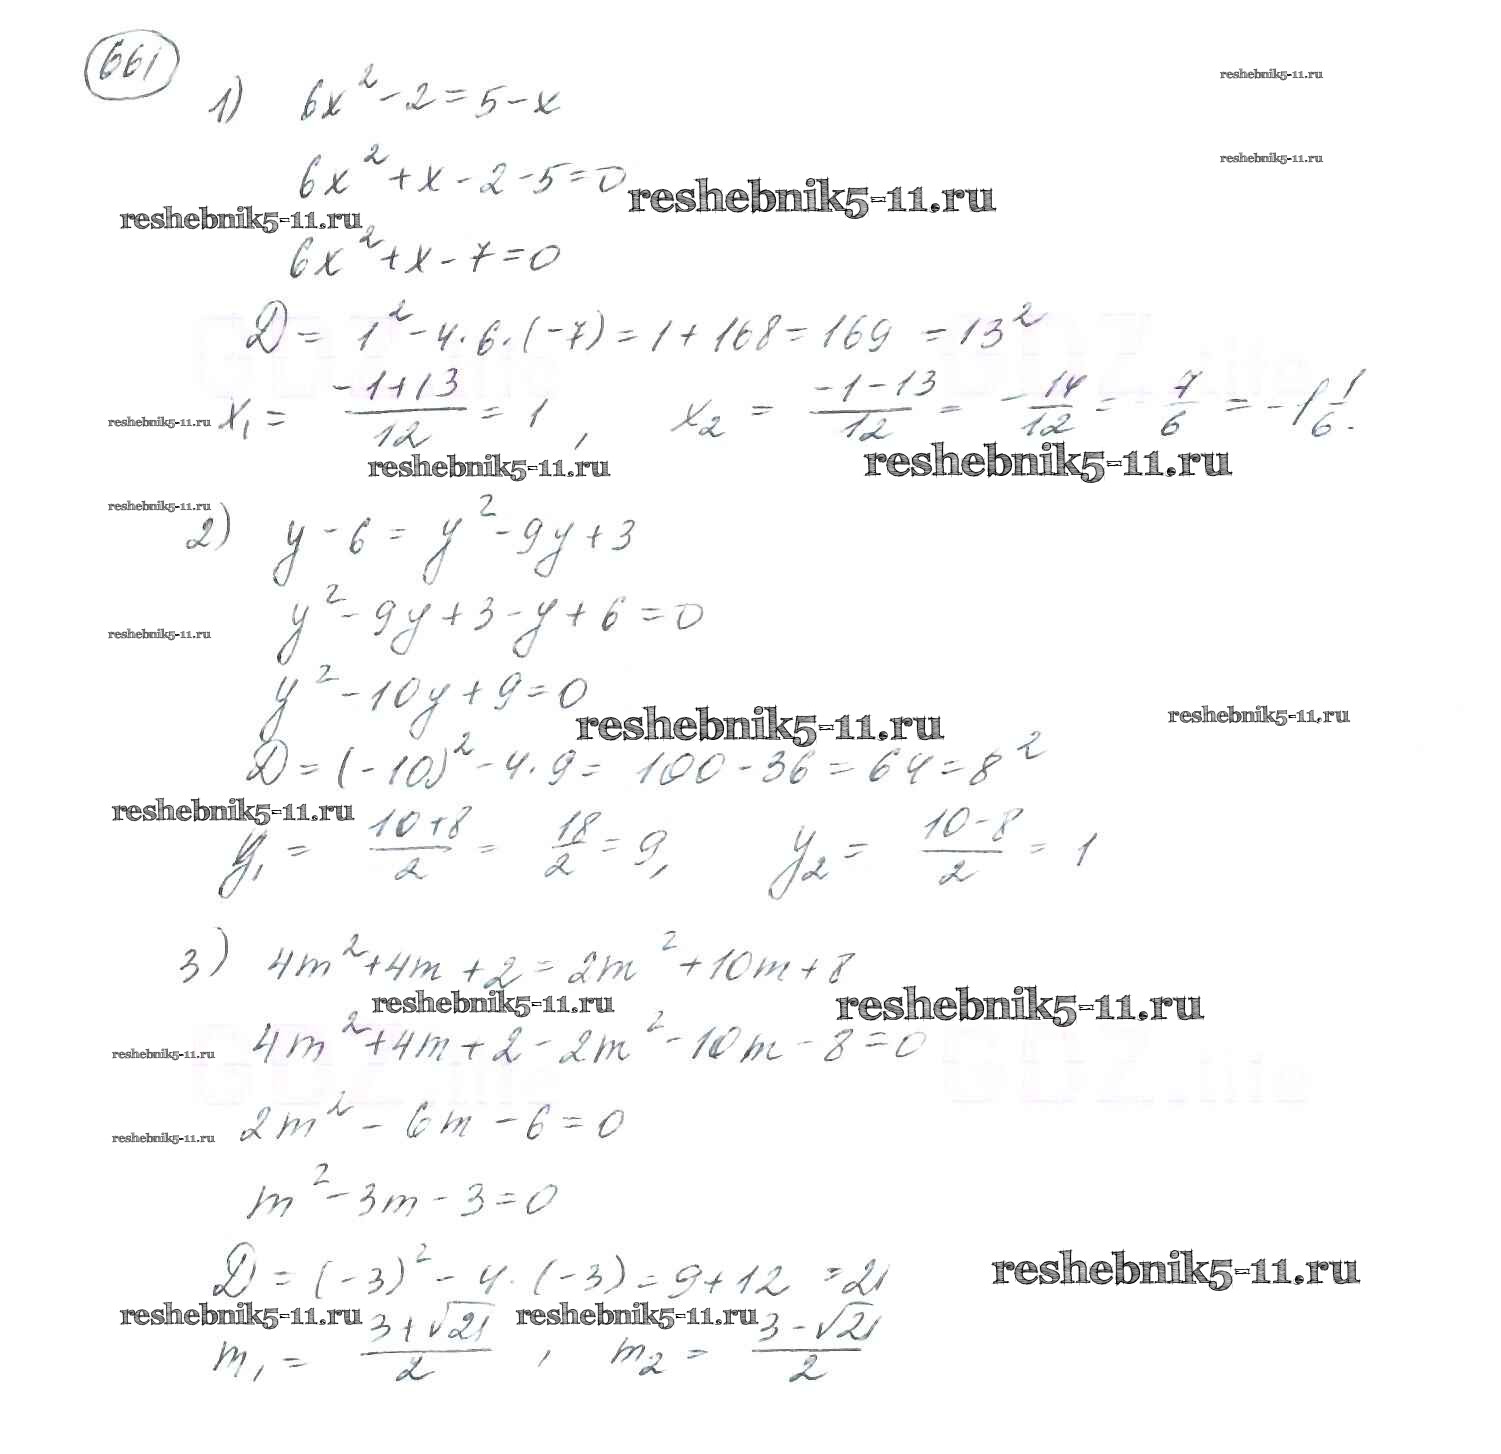 661
1) 6x² - 2 = 5 - x
reshebnik5-11.ru
6x² + x - 2 - 5 = 0
reshebnik5-11.ru
reshebnik5-11.ru
reshebnik5-11.ru
6x² + x - 7 = 0
D = 1² - 4·6·(-7) = 1 + 168 = 169 = 13²
GDZ.life GDZ.life
reshebnik5-11.ru
x₁ = (-1+13)/12 = 1, x₂ = (-1-13)/12 = -14/12 = -7/6 = -1 1/6.
reshebnik5-11.ru
reshebnik5-11.ru
reshebnik5-11.ru
2) y - 6 = y² - 9y + 3
y² - 9y + 3 - y + 6 = 0
reshebnik5-11.ru
y² - 10y + 9 = 0
reshebnik5-11.ru
reshebnik5-11.ru
D = (-10)² - 4·9 = 100 - 36 = 64 = 8²
reshebnik5-11.ru
y₁ = (10+8)/2 = 18/2 = 9, y₂ = (10-8)/2 = 1
3) 4m² + 4m + 2 = 2m² + 10m + 8
reshebnik5-11.ru
reshebnik5-11.ru
4m² + 4m + 2 - 2m² - 10m - 8 = 0
reshebnik5-11.ru
GDZ.life GDZ.life
2m² - 6m - 6 = 0
reshebnik5-11.ru
m² - 3m - 3 = 0
D = (-3)² - 4·(-3) = 9 + 12 = 21
reshebnik5-11.ru
reshebnik5-11.ru
reshebnik5-11.ru
m₁ = (3+√21)/2, m₂ = (3-√21)/2